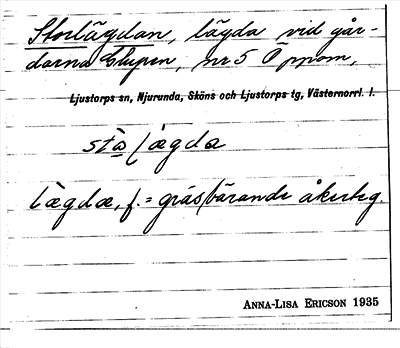 Storlägdan, lägda vid går-
darna Klupen, nr 5 Öppom,
Ljustorps sn, Njurunda, Sköns och Ljustorps tg, Västernorrl. l.
lægdæ, f. = gräsbärande åkerteg.
ANNA-LISA ERICSON 1935